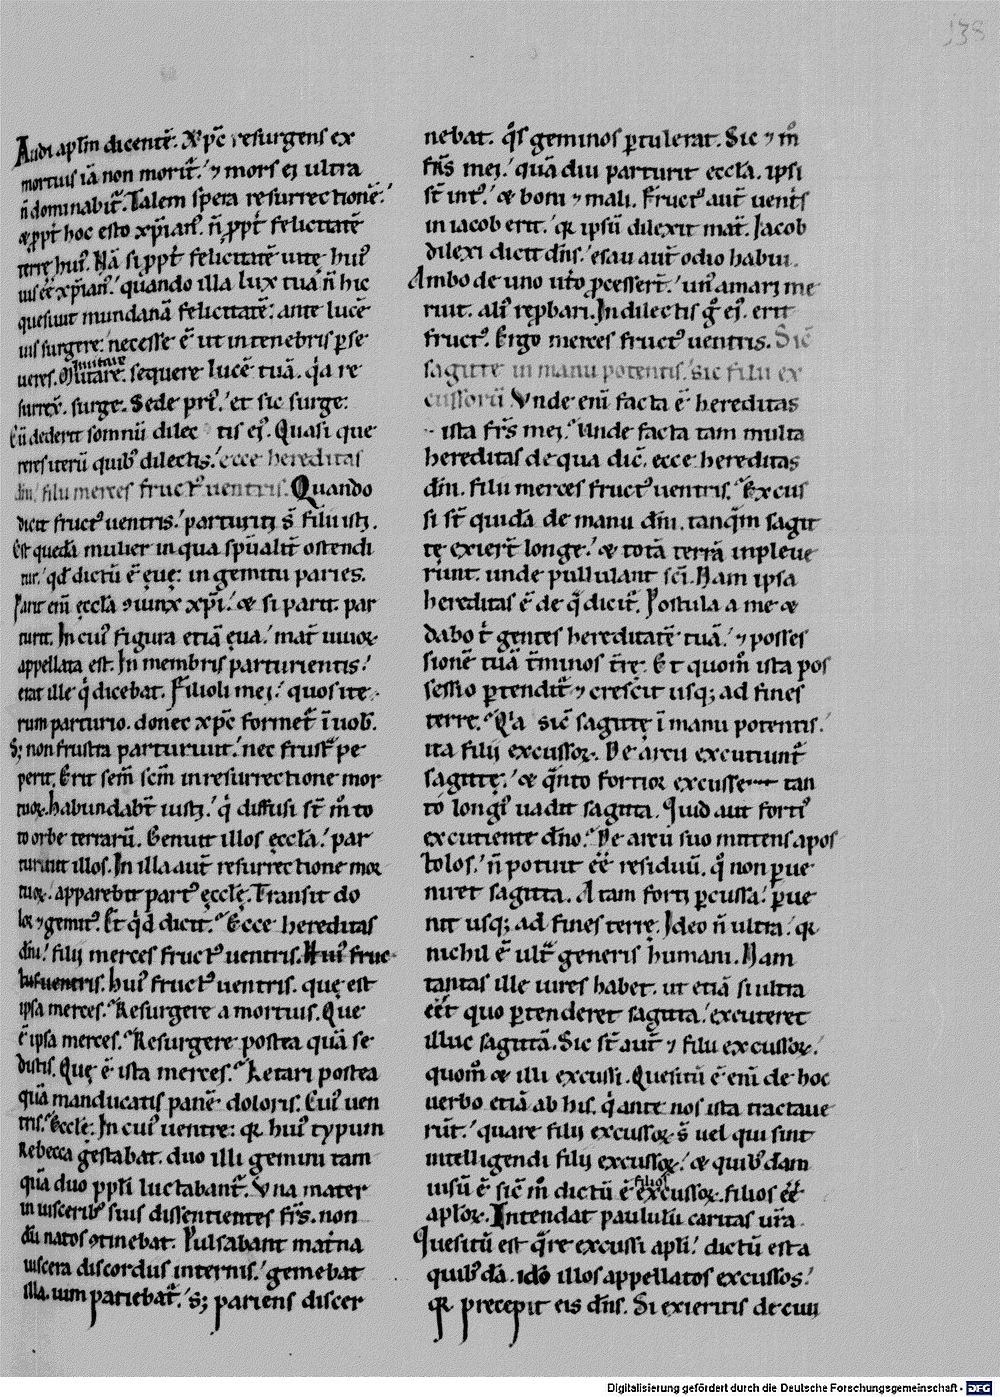 138
Audi aplm̄ dicentē. Xp̄c resurgens ex
mortuis iā non morit̄. ⁊ mors ei ultra
n̄ dominabit̄. Talem spera resurrectionē.
& ꝓpt̄ hoc esto xp̄ianꝰ. n̄ ꝓpt̄ felicitatē
terrę huiꝰ. Nā si ꝓpt̄ felicitatē uitę huiꝰ
uis eē xp̄ianꝰ. quando illa lux tua n̄ hic
quesiuit mundanā felicitatē: ante lucē
uis surgere: necesse ē ut in tenebris ꝑse
ueres. Mutare. sequere lucē tuā. q̇a re
surrex̄. surge. Sede pri. et sic surge.
Cū dederit somnū dilec tis eiꝰ. Quasi que
reres iterū quibꝰ dilectis. ecce hereditas
dn̄i filii merces fructꝰ uentris. Quando
dicit fructꝰ uentris. parturiti s̄ filii isti.
Est quedā mulier in qua sp̄ualit̄ ostendi
tur. qd̄ dictū ē euę: in gemitu paries.
Parit eni ęccla ꝯiunx xp̄i. & si parit. par
turit. In cuiꝰ figura etiā eua. mat̄ uiuoꝝ
appellata est. In membris parturientis.
erat ille q̇ dicebat. Filioli mei. quos ite
rum parturio. donec xp̄c formet̄ ī uob̄.
S; non frustra parturiuit. nec frustꝰ pe
perit. Erit sem̄ scm̄ in resurrectione mor
tuoꝝ. habundabt̄ iusti. q̇ diffusi st̄ m̊ to
to orbe terrarū. Genuit illos ęccla. par
turiuit illos. In illa aut̄ resurrectione mor
tuoꝝ. apparebit partꝰ ęcclę. Transit do
lor ⁊ gemitꝰ. Et q̇d dicit. Ecce hereditas
dn̄i. filii merces fructꝰ uentris. Huiꝰ fruc
tus uentris. huiꝰ fructꝰ uentris. quę est
ipsa merces. Resurgere a mortuis. Que
ē ipsa merces. Resurgere postea quā se
distis. Quę ē ista merces. Letari postea
quā manducatis panē doloris. Cuiꝰ uen
tris. Ecclę. In cuiꝰ uentre: qꝛ huiꝰ typum
Rebecca gestabat. duo illi gemini tam
quā duo ppl̄i luctabant̄. Vna mater
in uisceribꝰ suis dissentientes fr̄s. non
dū natos ꝯtinebat. Pulsabant mat̄na
uiscera discordiis internis. gemebat
illa. uim patiebat̄. s; pariens discer
nebat. q̊s geminos ꝑtulerat. Sic ⁊ m̊
fr̄s mei. quā diu parturit eccla. ipsi
st̄ intꝰ. & boni ⁊ mali. Fructꝰ aut̄ uent̄s
in iacob erit. qꝛ ipsū dilexit mat̄. Iacob
dilexi dicit dn̄s. esau aut̄ odio habui.
Ambo de uno ut̄o ꝓcessert̄. unꝰ amari me
ruit. aliꝰ reꝓbari. In dilectis g̊ eiꝰ. erit
fructꝰ. Ergo merces fructꝰ uentris. Sic
sagitte in manu potentis. sic filii ex
cussorū Vnde eni facta ē hereditas
ista fr̄s mei. Unde facta tam multa
hereditas de qua dic̄. ecce hereditas
dn̄i. filii merces fructꝰ uentris. Excus
si st̄ quidā de manu dn̄i. tanqm̄ sagit
tę exiert̄ longe. & totā terrā inpleue
runt. unde pullulant sc̄i. Nam ipsa
hereditas ē de q̄ dicit̄. Postula a me &
dabo t̄ gentes hereditatē tuā. ⁊ posses
sionē tuā t̄minos t̄rę. Et quom̊ ista pos
sessio ꝑtendit̄ ⁊ crescit usq; ad fines
terre. Q̇a sic̄ sagittę ī manu potentis.
ita filii excussoꝝ. De arcu excutiunt̄
sagittę. & q̄nto fortior excusse tan
to longiꝰ uadit sagitta. Quid aut̄ fortiꝰ
excutiente dn̄o. De arcu suo mittens apos
tolos. n̄ potuit eē residuū. q̊ non ꝑue
niret sagitta. A tam forti ꝑcussa. ꝑue
nit usq; ad fines terre. Ideo n̄ ultra. qꝛ
nichil ē ult̄ generis humani. Nam
tantas ille uires habet. ut etiā si ultra
eēt quo ꝑtenderet sagitta. excuteret
illuc sagittā. Sic st̄ aut̄ ⁊ filii excussoꝝ.
quom̊ & illi excussi. Quesitū ē eni de hoc
uerbo etiā ab his. q̇ ante nos ista tractaue
rūt. quare filii excussoꝝ s̄ uel qui sint
intelligendi filii excussoꝝ. & quibꝰdam
uisū ē sic̄ m̊ dictū ē filios excussoꝝ. filios eē
aploꝝ. Intendat paululū caritas ur̄a.
Quesitū est q̄re excussi apli. dictū est a
quibꝰdā. ideo illos appellatos excussos.
qꝛ precepit eis dn̄s. Si exieritis de ciui
Digitalisierung gefördert durch die Deutsche Forschungsgemeinschaft - DFG